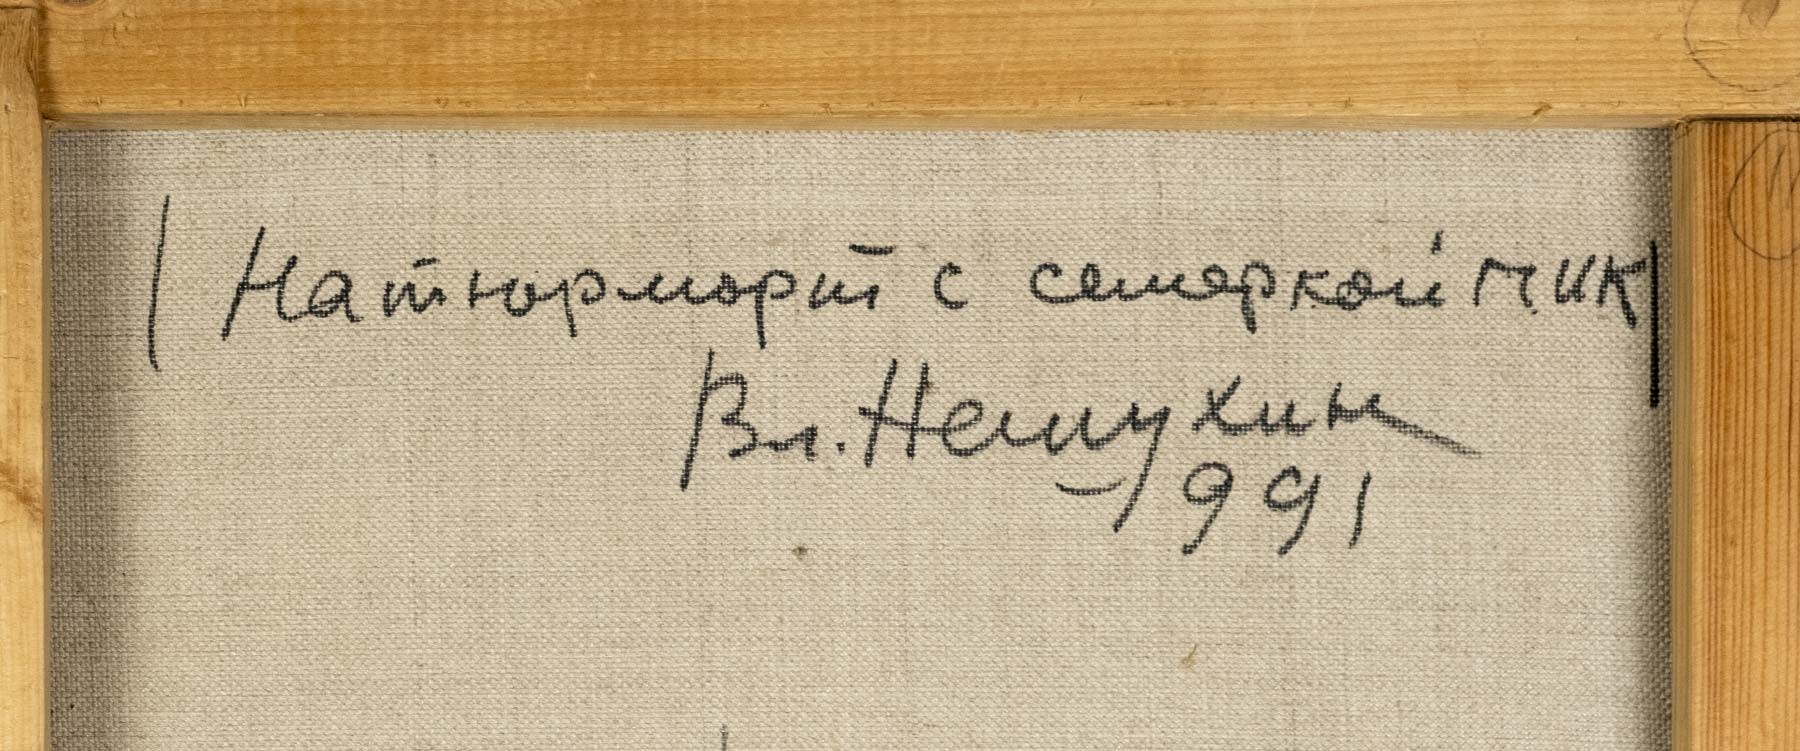 | Натюрморт с семеркой пик |
Вл. Немухин
991